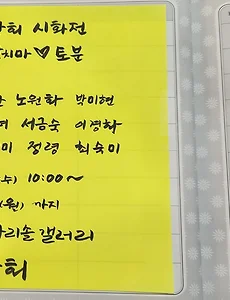 회 시화전
치마♡토분
노원화 박미현
서금숙 이경화
미 정령 최숙이
수) 10:00~
(월) 까지
리솔갤러리
회